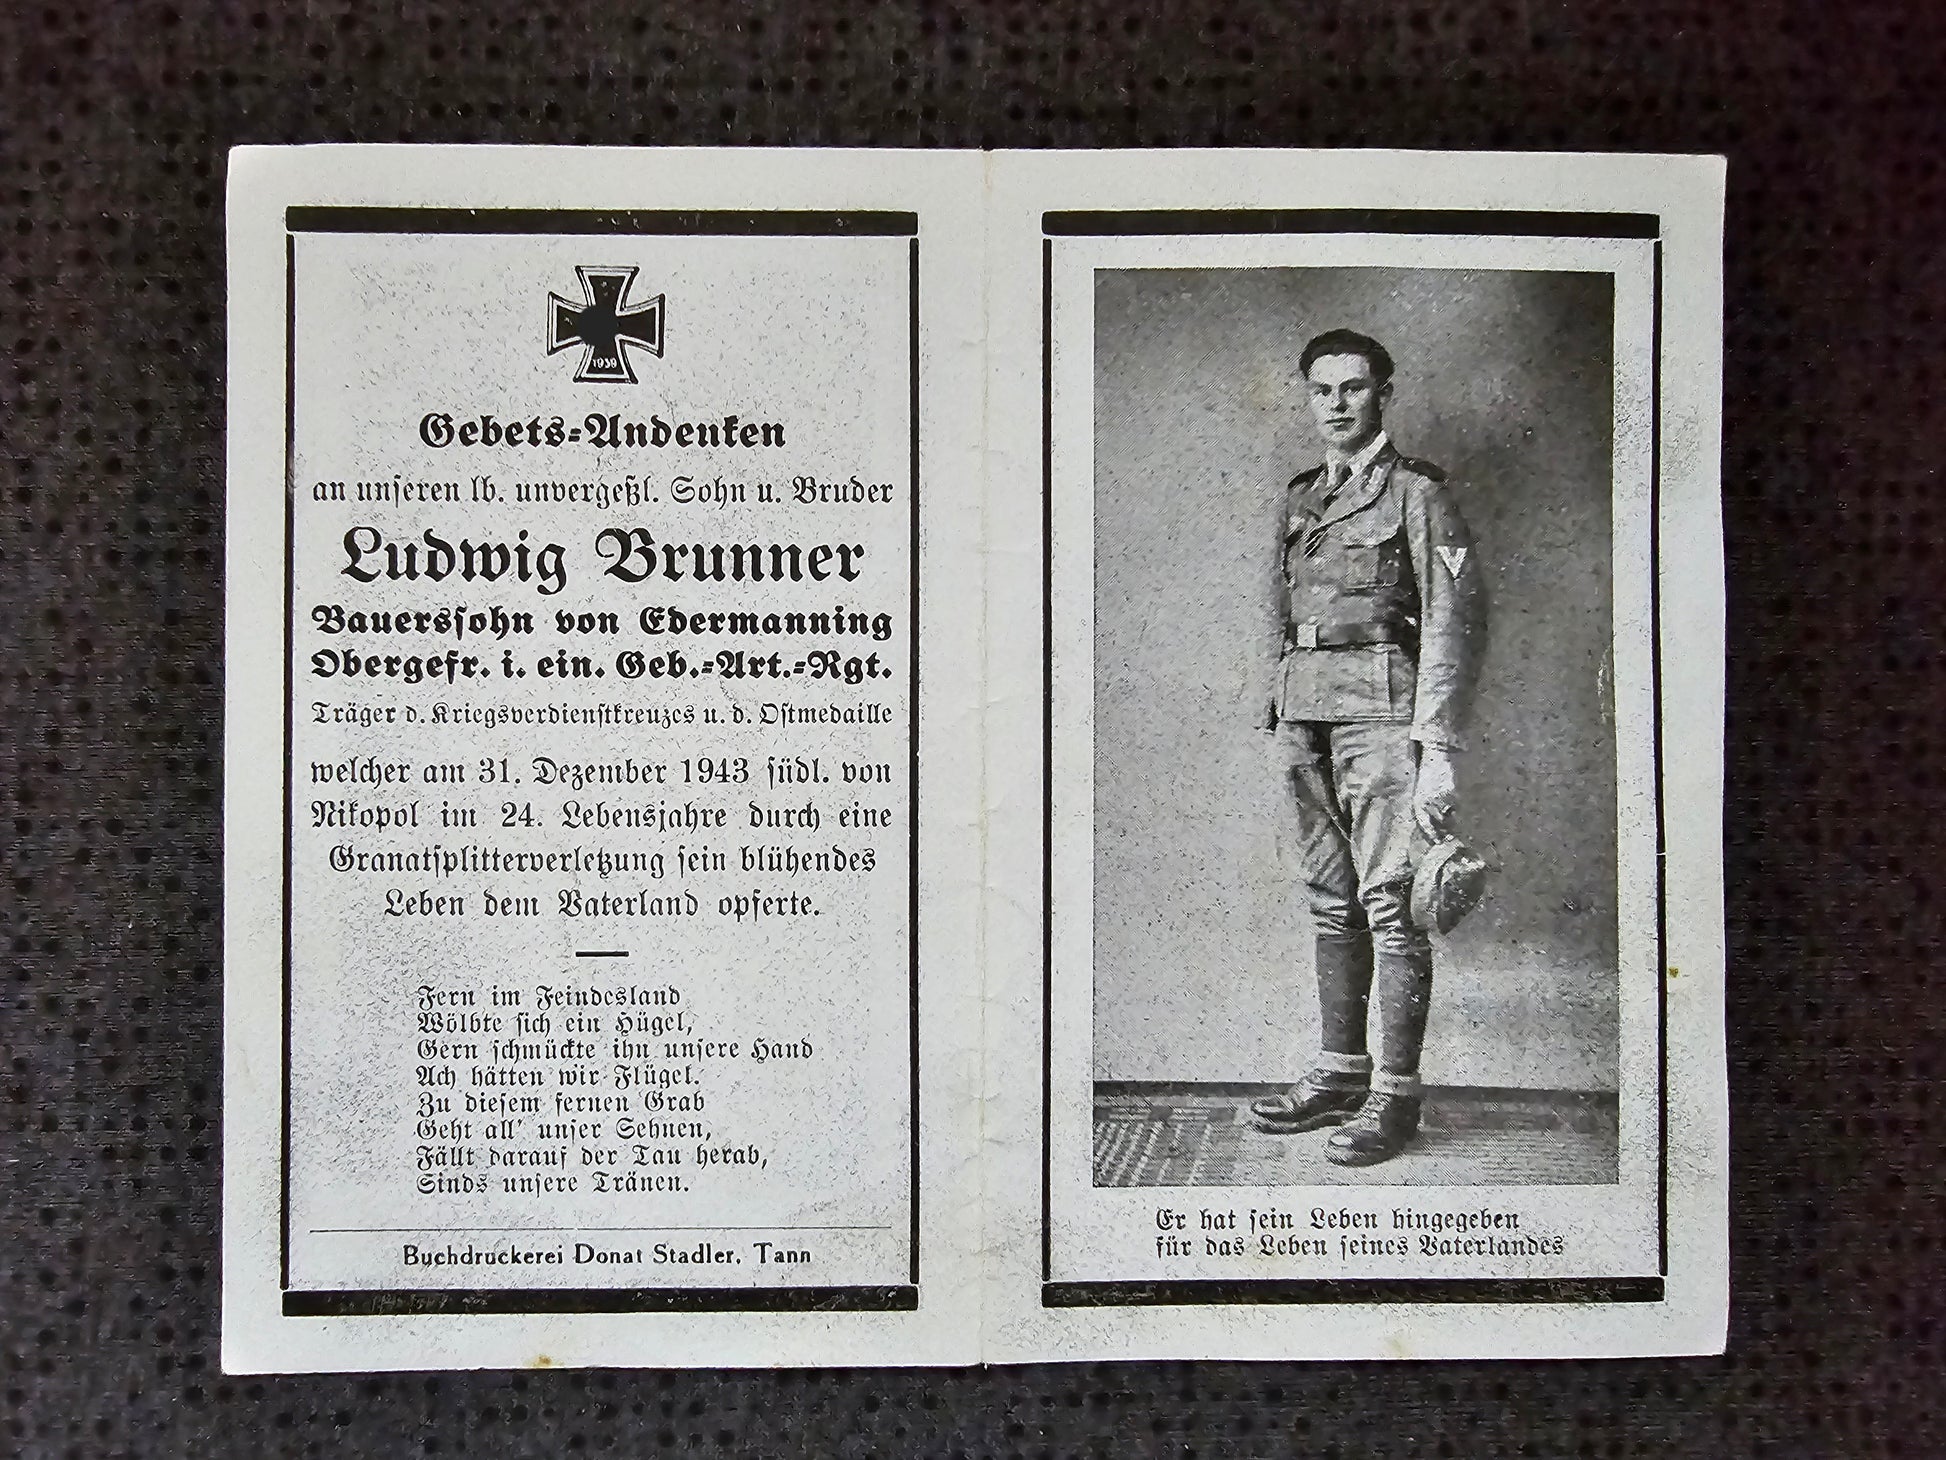 1939
Gebets-Andenken
an unseren lb. unvergeßl. Sohn u. Bruder
Ludwig Brunner
Bauerssohn von Edermanning
Obergefr. i. ein. Geb.-Art.-Rgt.
Träger d. Kriegsverdienstkreuzes u. d. Ostmedaille
welcher am 31. Dezember 1943 südl. von
Nikopol im 24. Lebensjahre durch eine
Granatsplitterverletzung sein blühendes
Leben dem Vaterland opferte.
Fern im Feindesland
Wölbte sich ein Hügel,
Gern schmückte ihn unsere Hand
Ach hätten wir Flügel.
Zu diesem fernen Grab
Geht all' unser Sehnen,
Fällt darauf der Tau herab,
Sinds unsere Tränen.
Buchdruckerei Donat Stadler, Tann
Er hat sein Leben hingegeben
für das Leben seines Vaterlandes